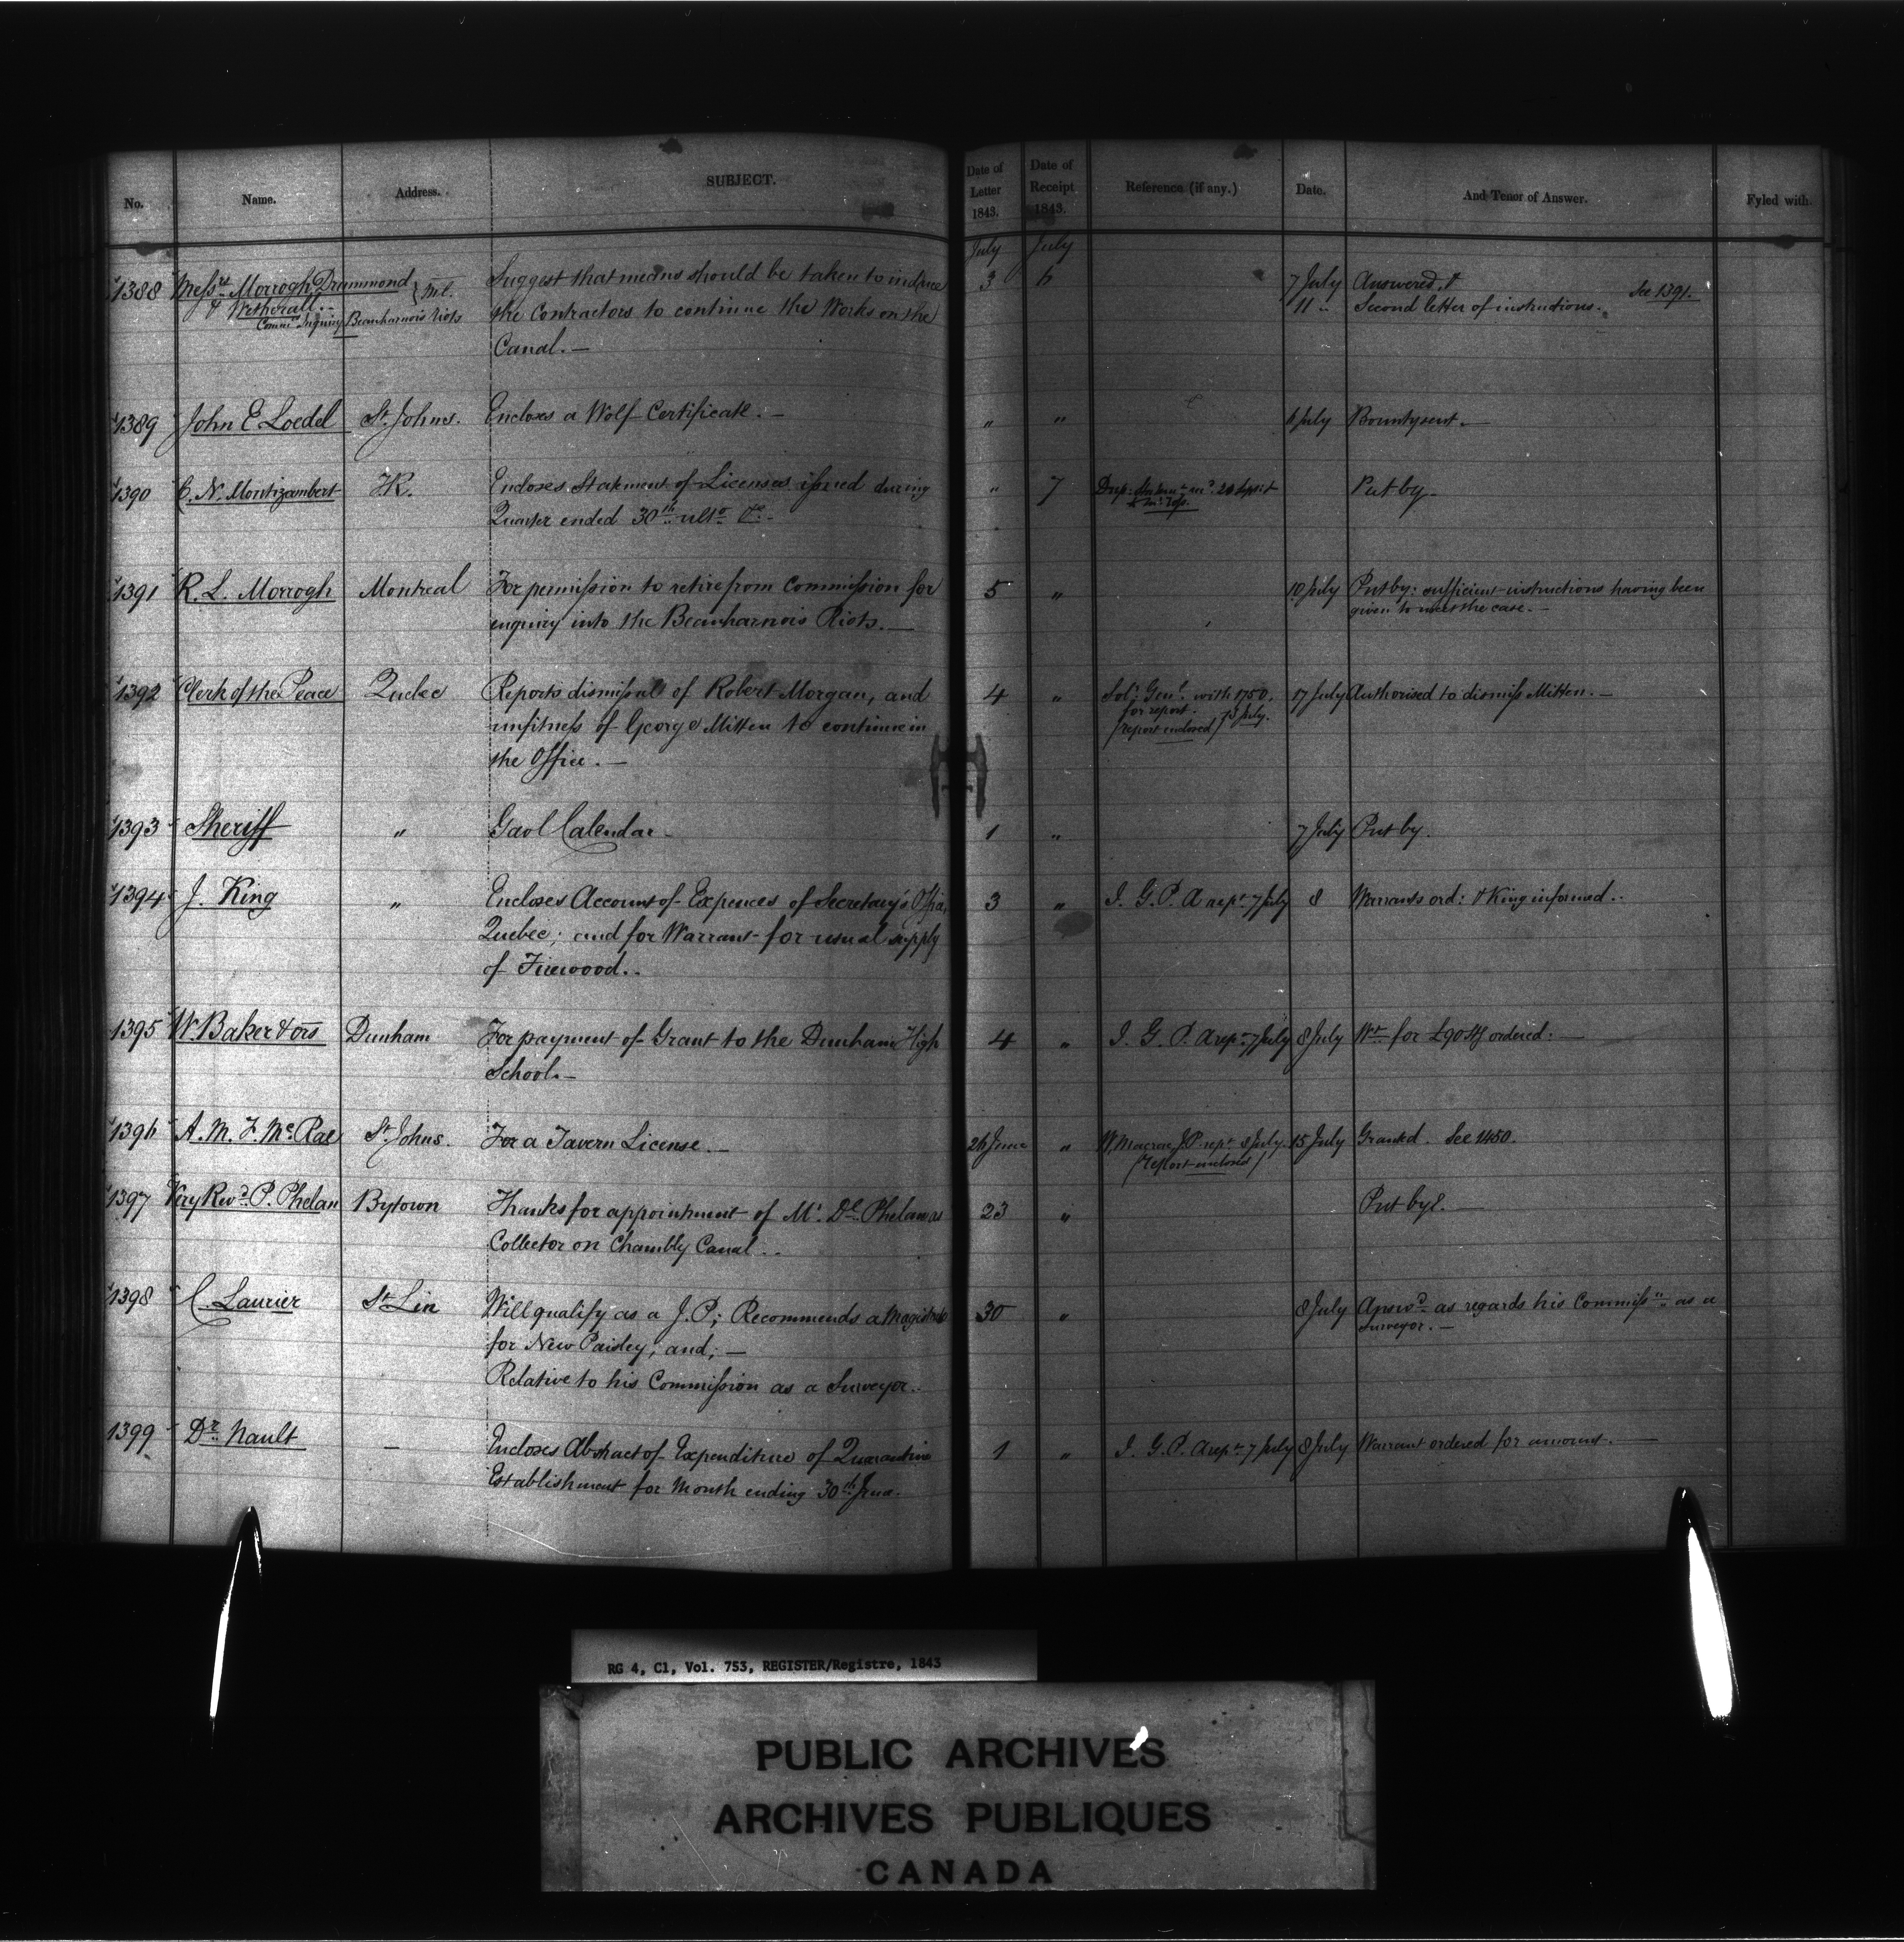 No. Name. Address. SUBJECT. Date of Letter 1843. Date of Receipt 1843. Reference (if any.) Date. And Tenor of Answer. Fyled with.
July July
1388 Messrs Morrogh Drummond & Wetherall Ml. Suggest that means should be taken to induce 3 6 7 July Answered. See 1391.
Commrs Inquiry Beauharnois Riots the Contractors to continue the Works on the 11 " Second letter of instructions.
Canal.—
1389 John E Loedel St. Johns. Encloses a Wolf Certificate.— " " 6 July Bounty sent.—
1390 C. N. Montizambert T.R. Encloses Statement of Licenses issued during " 7 Put by.
Quarter ended 30th ulto &c.-
1391 R. L. Morrogh Montreal For permission to retire from Commission for 5 " 10 July Put by: sufficient instructions having been
enquiry into the Beauharnois Riots.— given to meet the case.—
1392 Clerk of the Peace Quebec Reports dismissal of Robert Morgan, and 4 " Solr Genl. with 1750, 17 July Authorised to dismiss Mitten.—
unfitness of George Mitten to continue in for report.
the Office.— /report enclosed/ July.
1393 Sheriff " Gaol Calendar. 1 " 7 July Put by.
1394 J. King " Encloses Account of Expences of Secretary's Office, 3 " I. G. P. A rept 7 July 8 Warrants ord: & King informed..
Quebec; and for Warrant for usual supply
of Firewood..
1395 W. Baker & ors Dunham For payment of Grant to the Dunham High 4 " I. G. P. A rept 7 July 8 July Wt for £90 Stg ordered:—
School.—
1396 A. M. F. McRae St. Johns. For a Tavern License.— 26 June " W. Macrae J.P. rept 8 July. 15 July Granted. See 1450.
/report enclosed/
1397 Very Revd. P. Phelan Bytown Thanks for appointment of Mr. Dl Phelan as 23 " Put by.—
Collector on Chambly Canal..
1398 C. Laurier St Lin Will qualify as a J.P; Recommends a Magistrate 30 " 8 July Answd as regards his Commissn as a
for New Paisley; and;— Surveyor.—
Relative to his Commission as a Surveyor.
1399 Dr. Nault — Encloses Abstract of Expenditure of Quarantine 1 " I. G. P. A rept 7 July 8 July Warrant ordered for amount.—
Establishment for Month ending 30th June.
RG 4, C1, Vol. 753, REGISTER/Registre, 1843
PUBLIC ARCHIVES
ARCHIVES PUBLIQUES
CANADA